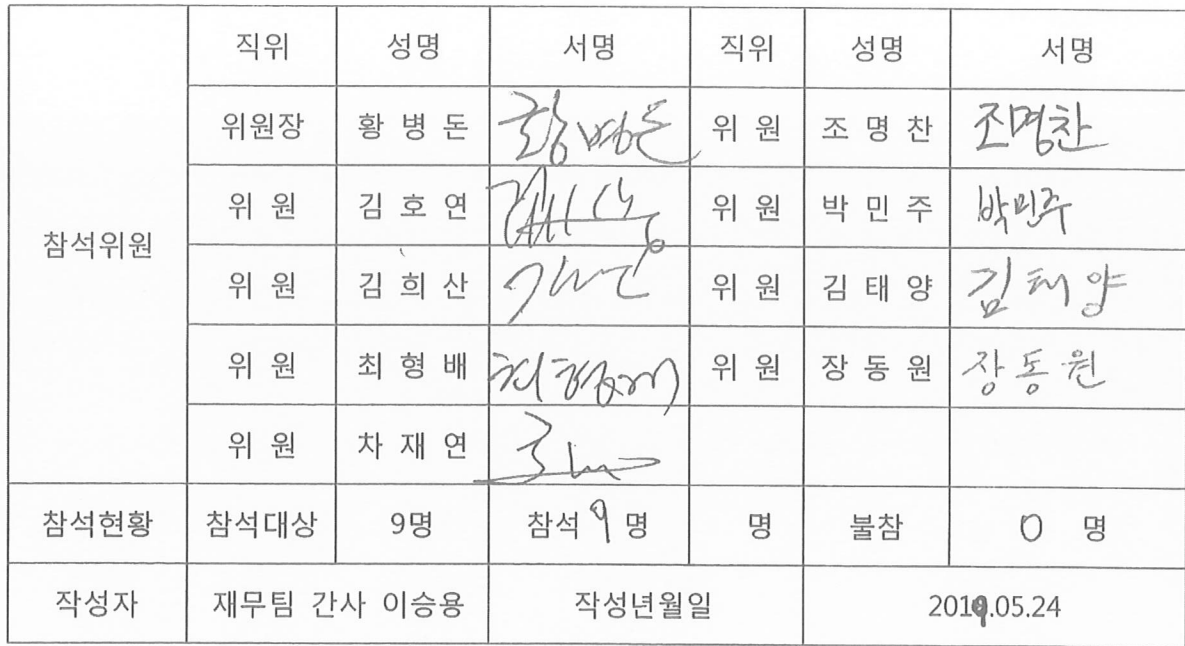 직위 성명 서명 직위 성명 서명
위원장 황병돈 황병돈 위원 조명찬 조명찬
참석위원
위원 김호연 위원 박민주 박민주
위원 김희산 위원 김태양 김태양
위원 최형배 최형배 위원 장동원 장동원
위원 차재연
참석현황 참석대상 9명 참석 9명 명 불참 0 명
작성자 재무팀 간사 이승용 작성년월일 2019.05.24